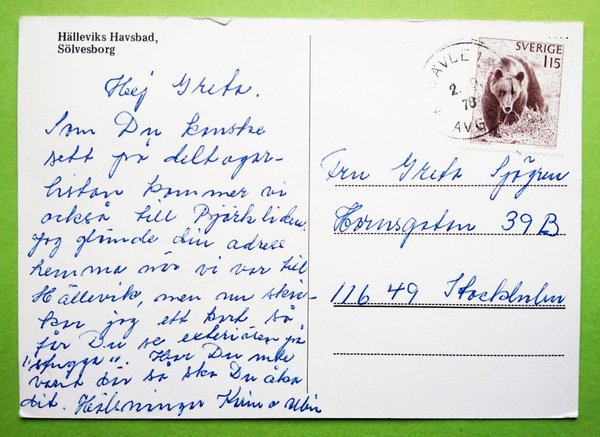 Hälleviks Havsbad,
Sölvesborg
Hej Greta.
Som Du kanske
sett på deltagar-
listan kommer vi
också till Björkliden.
Jag glömde din adress
hemma när vi var till
Hällevik, men nu skic-
kar jag ett kort så
får Du se exteriören på
"stugga". Har Du inte
varit där så ska Du åka
dit. Hälsningar
SVERIGE
115
GÄVLE 1
2.9.
78
AVG
Fru Greta Sjögren
Hornsgatan 39B
116 49 Stockholm